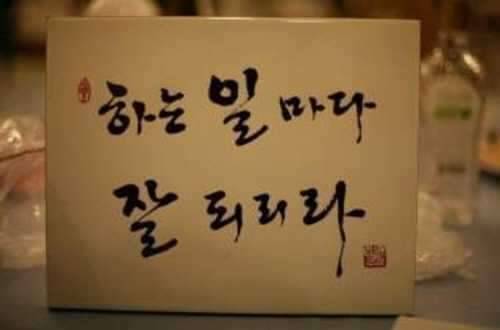 하는 일마다
잘 되리라